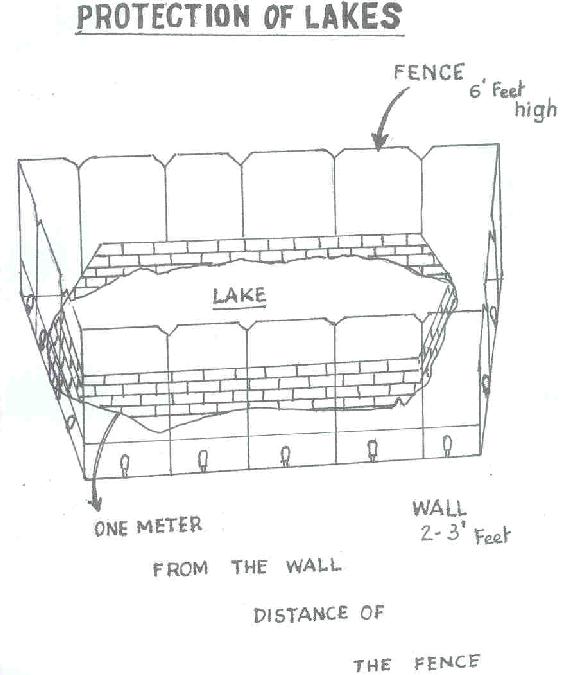 PROTECTION OF LAKES
FENCE 6' Feet
high
LAKE
ONE METER
WALL
2-3' Feet
FROM THE WALL
DISTANCE OF
THE FENCE